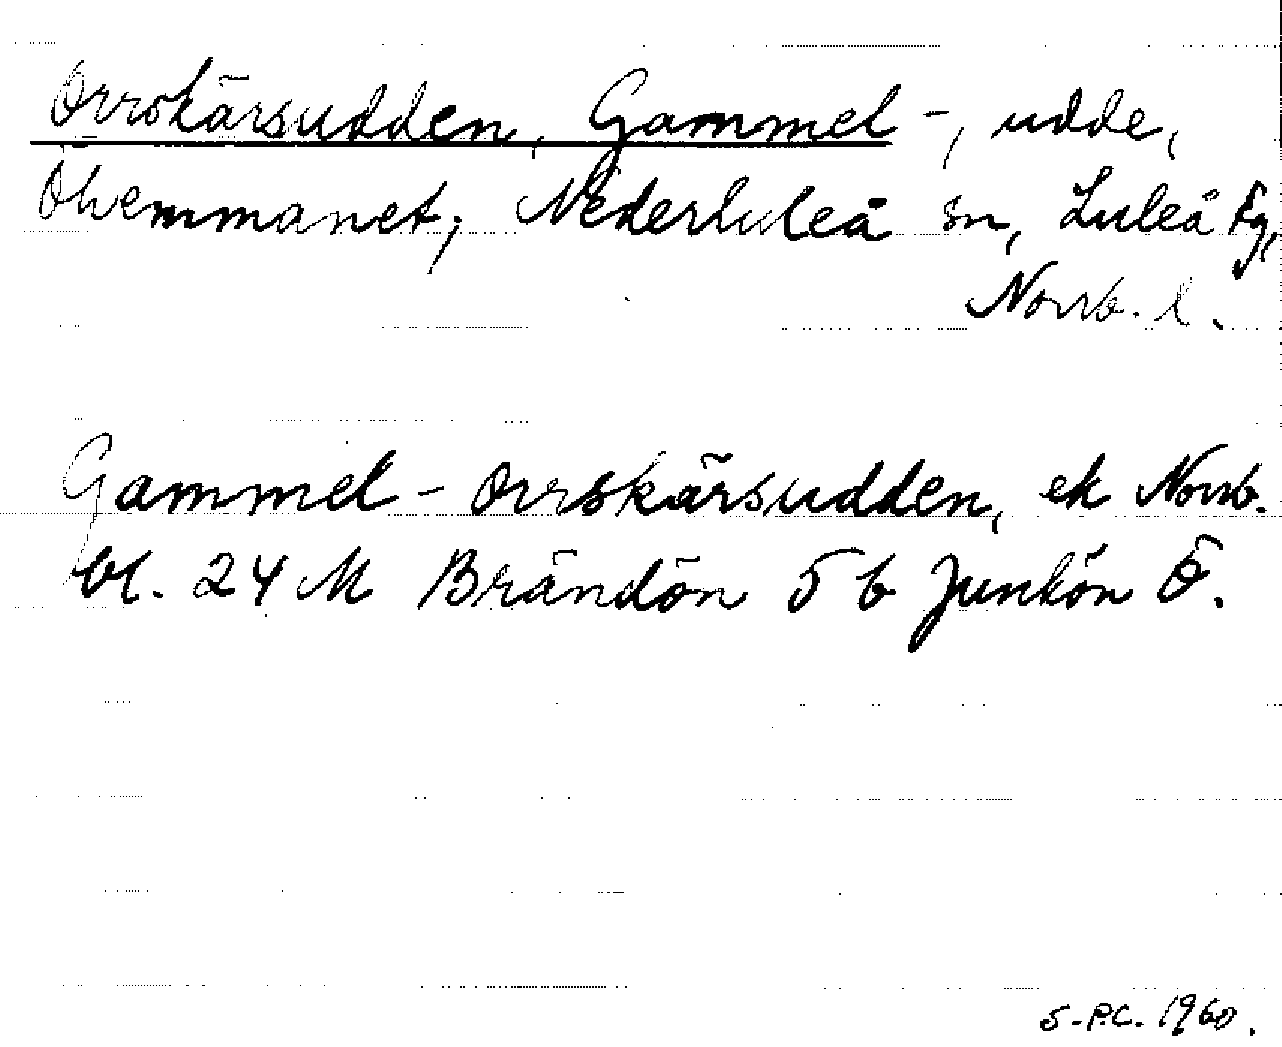 Orrskärsudden, Gammel-, udde,
Öhemmanet, Nederluleå sn, Luleå tg,
Norrb. l.
Gammel-Orrskärsudden, ek Norrb.
bl. 24 M Brändön 5 b Junkön Ö.
S-P.C. 1960.